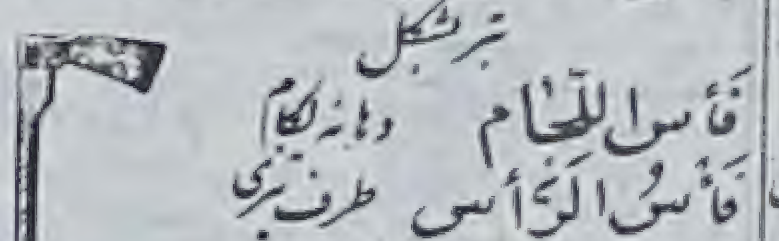 تبر شکل
فَأْس اللِّجَام دهانه لگام
فَأْسُ الرَّأس طرف